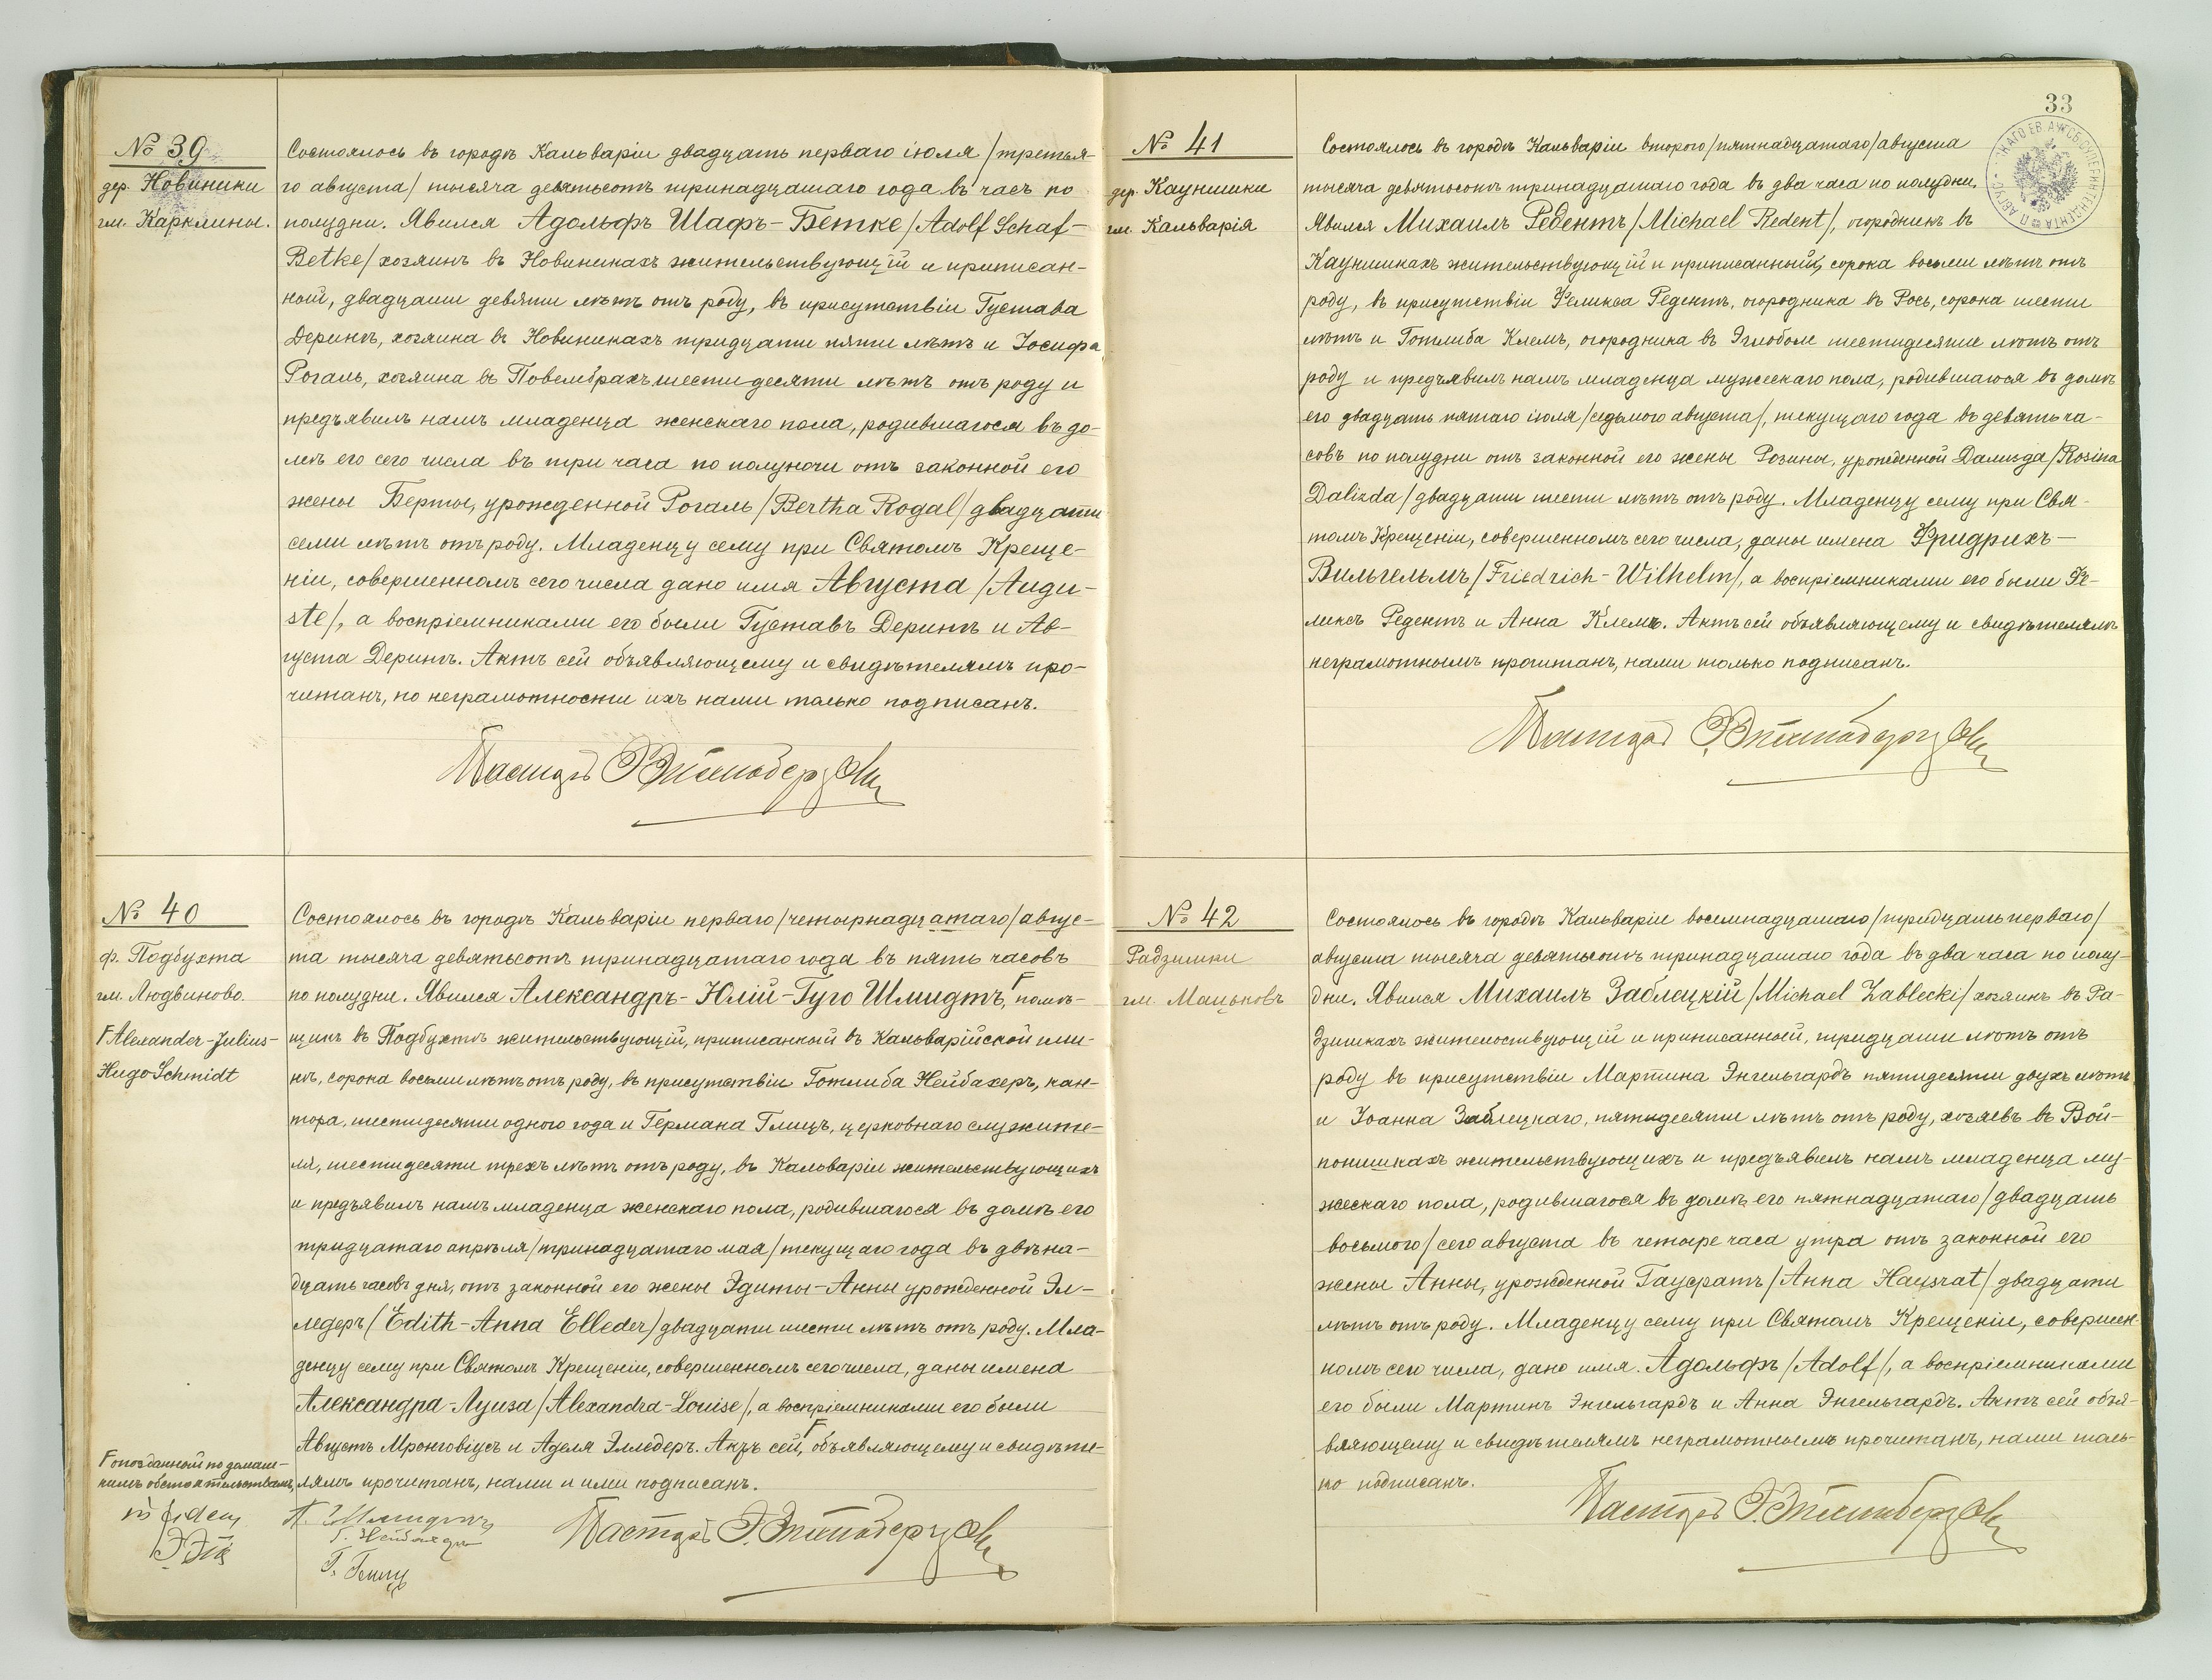 № 39
дер. Новиники
гм. Карклины.
Состоялось въ городѣ Кальваріи двадцать перваго іюля /третья-
го августа/ тысяча девятьсотъ тринадцатаго года въ часъ по
полудни. Явился Адольфъ Шафъ-Бетке /Adolf Schaf-
Betke/ хозяинъ въ Новиникахъ жительствующій и приписан-
ной, двадцати девяти лѣтъ отъ роду, въ присутствіи Густава
Дерингъ, хозяина въ Новиникахъ тридцати пяти лѣтъ и Іосифа
Рогаль, хозяина въ Повембрахъ шестидесяти лѣтъ отъ роду и
предъявилъ намъ младенца женскаго пола, родившагося въ до-
мѣ его сего числа въ три часа по полуночи отъ законной его
жены Берты, урожденной Рогаль /Bertha Rogal/ двадцати
семи лѣтъ отъ роду. Младенцу сему при Святомъ Креще-
ніи, совершенномъ сего числа дано имя Августа /Augu-
ste/, а воспріемниками его были Густавъ Дерингъ и Ав-
густа Дерингъ. Актъ сей объявляющему и свидѣтелямъ про-
читанъ, по неграмотности ихъ нами только подписанъ.
Пасторъ
№ 40
ф. Подбухта
гм. Людвиново.
Г Alexander-Julius-
Hugo Schmidt
Состоялось въ городѣ Кальваріи перваго /четырнадцатаго/ авгус-
та тысяча девятьсотъ тринадцатаго года въ пять часовъ
по полудни. Явился Александръ-Юлій-Гуго Шмидтъ, Г помѣ-
щикъ въ Подбухтѣ жительствующій, приписанный въ Кальварійской гми-
нѣ, сорока восьми лѣтъ отъ роду, въ присутствіи Готлиба Нейбахеръ, кан-
тора, шестидесяти одного года и Германа Глицъ, церковнаго служите-
ля, шестидесяти трехъ лѣтъ отъ роду, въ Кальваріи жительствующихъ
и предъявилъ намъ младенца женскаго пола, родившагося въ домѣ его
тридцатаго апрѣля /тринадцатаго мая/ текущаго года въ двѣна-
дцать часовъ дня, отъ законной его жены Эдиты-Анны урожденной Эл-
ледеръ /Edith-Anna Elleder/ двадцати шести лѣтъ отъ роду. Мла-
денцу сему при Святомъ Крещеніи, совершенномъ сего числа, даны имена
Александра-Луиза /Alexandra-Louise/, а воспріемниками его были
Августъ Мронговіусъ и Аделя Элледеръ. Актъ сей, Г объявляющему и свидѣте-
лямъ прочитанъ, нами и ими подписанъ.
Г опозданной по домаш-
нимъ обстоятельствамъ,
in fidem
Э. Эп
А. Шмидтъ
Г. Нейбахеръ
Г. Глицъ
Пасторъ
33
№ 41
дер. Каунишки
гм. Кальварія
Состоялось въ городѣ Кальваріи второго /пятнадцатаго/ августа
тысяча девятьсотъ тринадцатаго года въ два часа по полудни.
Явился Михаилъ Редентъ /Michael Redent/, огородникъ въ
Каунишкахъ жительствующій и приписанный, сорока восьми лѣтъ отъ
роду, въ присутствіи Феликса Редентъ, огородника въ Рось, сорока шести
лѣтъ и Готлиба Клемъ, огородника въ Эглоболе шестидесяти лѣтъ отъ
роду и предъявилъ намъ младенца мужескаго пола, родившагося въ домѣ
его двадцать пятаго іюля /седьмого августа/, текущаго года въ девять ча-
совъ по полудни отъ законной его жены Розины, урожденной Дализда /Rosina
Dalizda/ двадцати шести лѣтъ отъ роду. Младенцу сему при Свя-
томъ Крещеніи, совершенномъ сего числа, даны имена Фридрихъ-
Вильгельмъ /Friedrich-Wilhelm/, а воспріемниками его были Фе-
ликсъ Редентъ и Анна Клемъ. Актъ сей объявляющему и свидѣтелямъ
неграмотнымъ прочитанъ, нами только подписанъ.
Пасторъ
№ 42
Радзишки
гм. Мацьковъ
Состоялось въ городѣ Кальваріи восемнадцатаго /тридцать перваго/
августа тысяча девятьсотъ тринадцатаго года въ два часа по полу-
дни. Явился Михаилъ Заблецкій /Michael Zablecki/ хозяинъ въ Ра-
дзишкахъ жительствующій и приписанной, тридцати лѣтъ отъ
роду въ присутствіи Мартина Энгельгардъ пятидесяти двухъ лѣтъ
и Іоанна Заблецкаго, пятидесяти лѣтъ отъ роду, хозяевъ въ Вой-
понишкахъ жительствующихъ и предъявилъ намъ младенца му-
жескаго пола, родившагося въ домѣ его пятнадцатаго /двадцать
восьмого/ сего августа въ четыре часа утра отъ законной его
жены Анны, урожденной Гаусратъ /Anna Hausrat/ двадцати
лѣтъ отъ роду. Младенцу сему при Святомъ Крещеніи, совершен-
номъ сего числа, дано имя Адольфъ /Adolf/, а воспріемниками
его были Мартинъ Энгельгардъ и Анна Энгельгардъ. Актъ сей объя-
вляющему и свидѣтелямъ неграмотнымъ прочитанъ, нами толь-
ко подписанъ.
Пасторъ